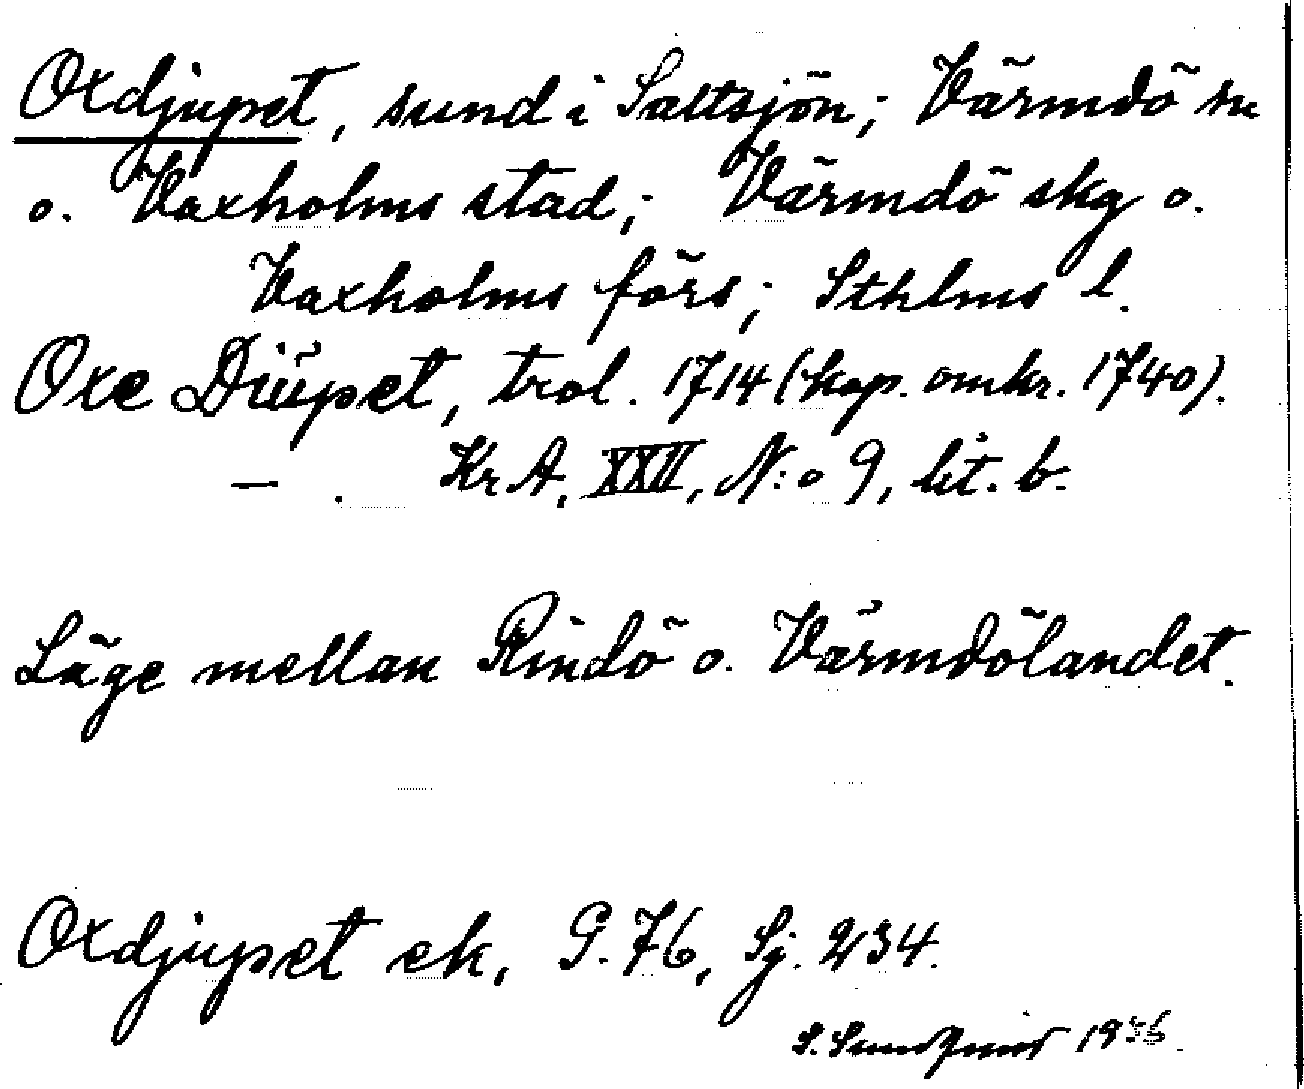 Oxdjupet, sund i Saltsjön; Värmdö sn
o. Vaxholms stad; Värmdö skg o.
Vaxholms förs; Sthlms l.
Oxe Diüpet, trol. 1714 (kop. omkr. 1740).
— . Kr A, XXII, N:o 9, lit. b.
Läge mellan Rindö o. Värmdölandet.
Oxdjupet ek, G. 76, Sj. 234.
S. Sundquist 1936